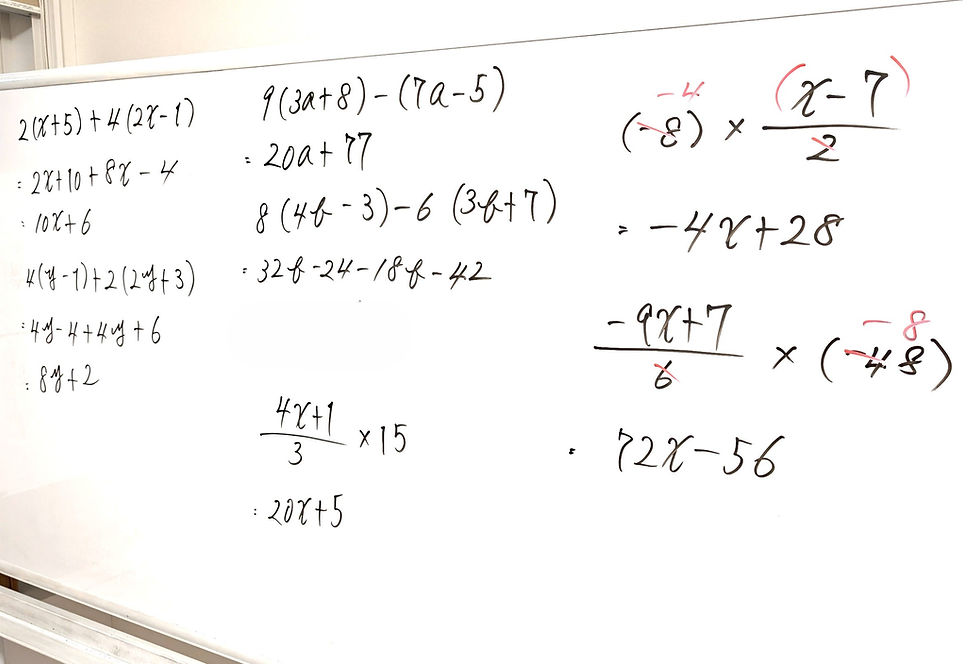 2(x+5)+4(2x-1)
=2x+10+8x-4
=10x+6
4(y-1)+2(2y+3)
=4y-4+4y+6
=8y+2
9(3a+8)-(7a-5)
=20a+77
8(4b-3)-6(3b+7)
=32b-24-18b-42
4x+1
3
×15
=20x+5
-4
(-8)×
(x-7)
2
=-4x+28
-9x+7
6
-8
×(-48)
=72x-56